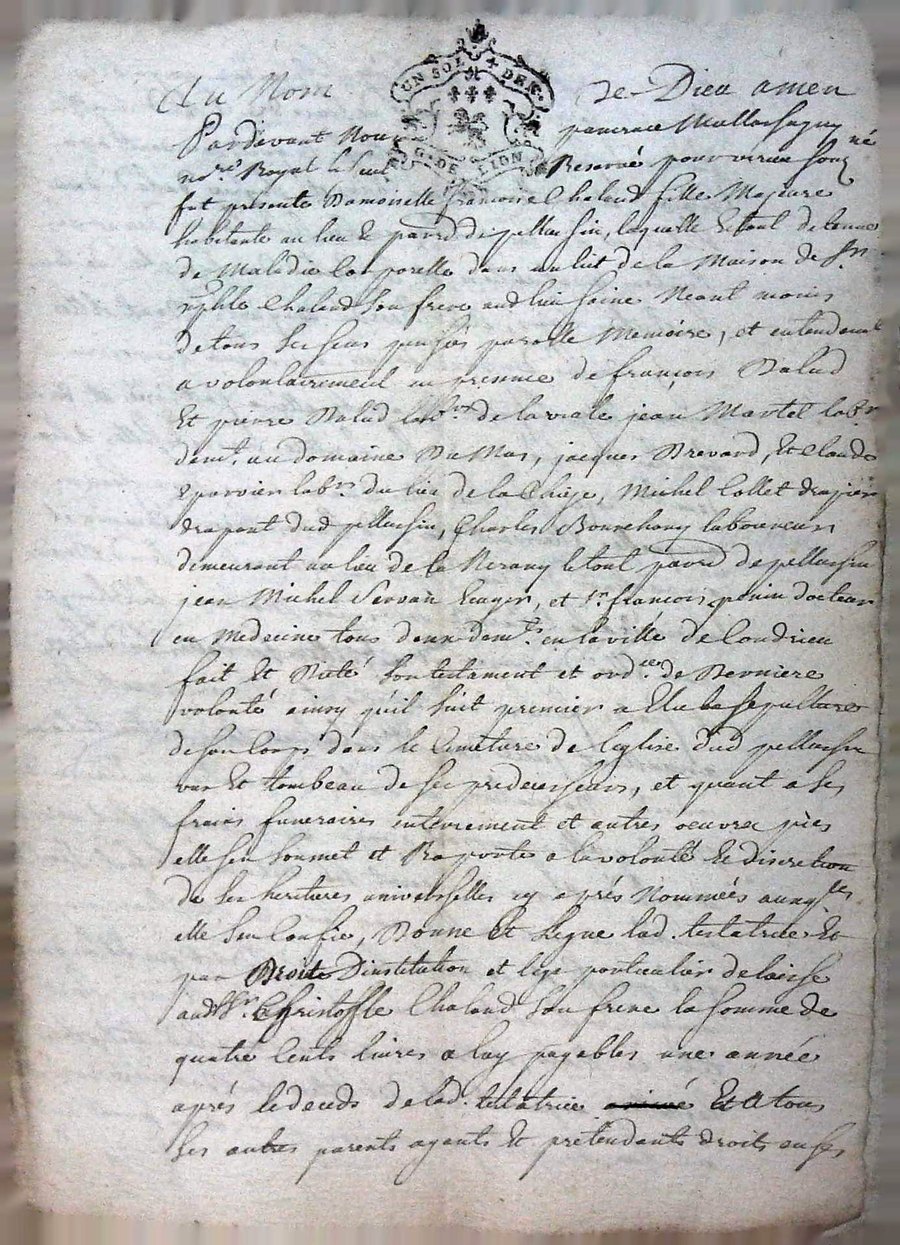 UN SOL 4 DEN.
G. DE LION
Au Nom de Dieu amen
Pardevant Nous pancrace Mallassagny né
no.re Royal Reservé pour vieux souz
fut presente Damoiselle francoise Chaland fille Majeure
habitante au lieu & parr.e de pellussin, laquelle Etant detenue
de Maladie Corporelle dans un lict de la Maison de Sr.
xphle Chaland son frere aud lieu saine Neant moins
de tous ses sens pensés parolle Memoire, et entendement
a volontairement en presence de francois Dalud
Et pierre Dalud lab.rs de la viale jean Martel lab.r
dem.t au domaine Du Mas, jacques Brevard, Et Claude
Eparvier lab.r du lieu de la Chieze, Michel Collet drapier
drapant dud pellussin, Charles Bonnehany laboureur
demeurant au lieu de la le tout parr.e de pellussin
jean Michel Servan Ecuyer, et Sr. francois docteur
en Medecine tous deux dem.ts en la ville de Condrieu
fait Et Dicté son testament et ord.ce de Derniere
volonté ainsy qu'il suit premier a Elu la sepulture
de son Corps dans le Cimeture de l'eglise dud pellussin
vas Et tombeau de ses predecesseurs, et quant a ses
fraix funeraires enterrement et autres oeuvres pies
elle s'en soumet et Raporte a la volonté & discretion
de ses heritieres universelles cy aprés Nommées auxq.lles
elle s'en Confie, Donne et Legue lad. testatrice Et
par Droit D'institution et legs particulier delaisse
aud Sr. Christofle Chaland son frere la somme de
quatre Cents livres a luy payables une année
aprés le deceds de lad. testatrice Et A tous
ses autres parents ayants Et pretendants droits en ses